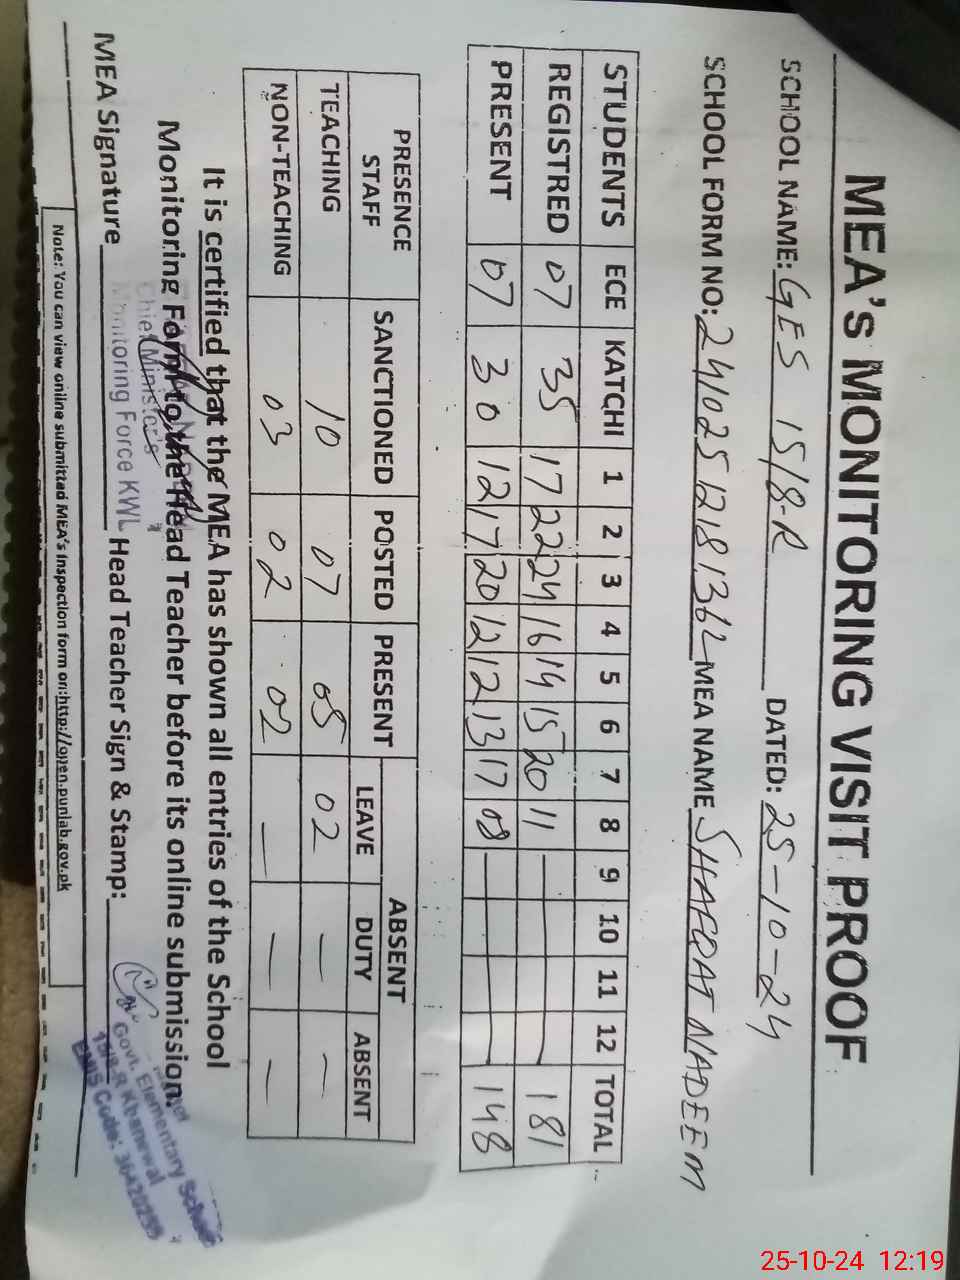 MEA's MONITORING VISIT PROOF
SCHOOL NAME: GES 15/8-R DATED: 25-10-24
SCHOOL FORM NO: 24102512181362 MEA NAME SHAFQAT NADEEM
STUDENTS ECE KATCHI 1 2 3 4 5 6 7 8 9 10 11 12 TOTAL
REGISTRED 07 35 17 22 24 16 14 15 20 11 181
PRESENT 07 30 12 17 20 12 12 13 17 08 148
PRESENCE STAFF SANCTIONED POSTED PRESENT ABSENT
LEAVE DUTY ABSENT
TEACHING 10 07 05 02 — —
NON-TEACHING 03 02 02 — — —
It is certified that the MEA has shown all entries of the School
Monitoring Form to the Head Teacher before its online submission.
Chief Minister's
Monitoring Force KWL
MEA Signature Head Teacher Sign & Stamp:
Govt. Elementary School
15/8-R Khanewal
EMIS Code:
Note: You can view online submitted MEA's Inspection form on:http://open.punjab.gov.pk
25-10-24 12:19